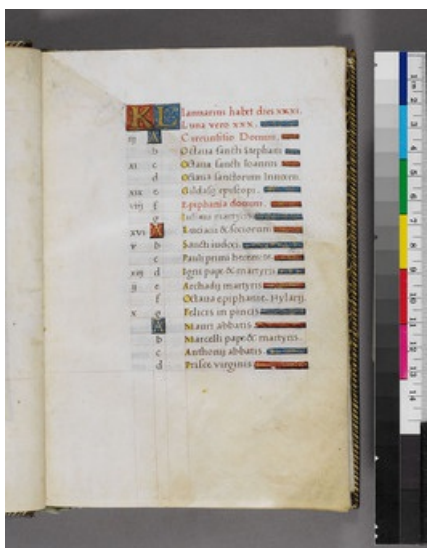 KL Ianuarius habet dies xxxi.
Luna vero xxx.
iij A Circuncisio Domini.
b Octaua sancti stephani
xi c Octaua sancti Ioannis
d Octaua sanctorum Innocen.
xix e episcopi.
viij f Epiphania domini.
g martyris
xvi A Luciani & sociorum
v b Sancti
c Pauli primi
xiij d pape & martyris
ij e Archadij martyris
f Octaua epiphanie. Hylarij.
x g Felicis in pincis
A Mauri abbatis
b Marcelli pape & martyris
c Anthonij abbatis
d Prisce virginis